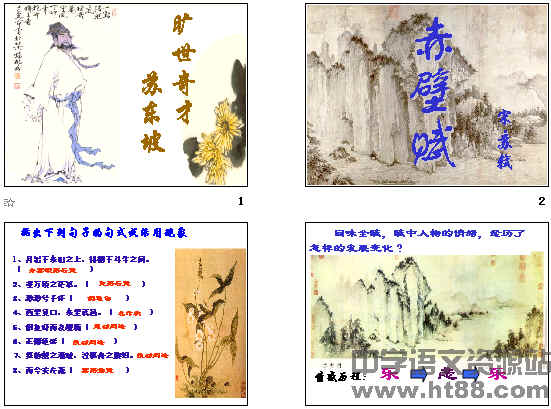 旷世奇才
苏东坡
1
赤壁赋
宋 苏轼
2
指出下列句子的句式或活用现象
1、月出于东山之上，徘徊于斗牛之间。
2、凌万顷之茫然。（定语后置）
3、渺渺兮予怀（ ）
4、西望夏口，东望武昌。（名作状）
5、侣鱼虾而友麋鹿（意动用法）
6、正襟危坐（使动用法）
7、舞幽壑之潜蛟，泣孤舟之嫠妇。使动用法
8、而今安在哉（宾语前置）
3
回味全赋，赋中人物的情绪，经历了
怎样的发展变化？
情感历程：乐 悲 乐
中学语文资源站
www.ht88.com